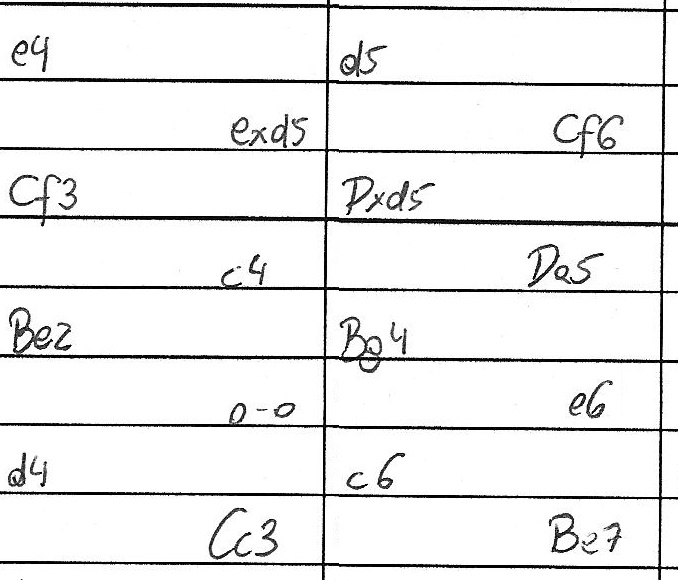 e4 d5
exd5 Cf6
Cf3 Dxd5
c4 Da5
Be2 Bg4
0-0 e6
d4 c6
Cc3 Be7